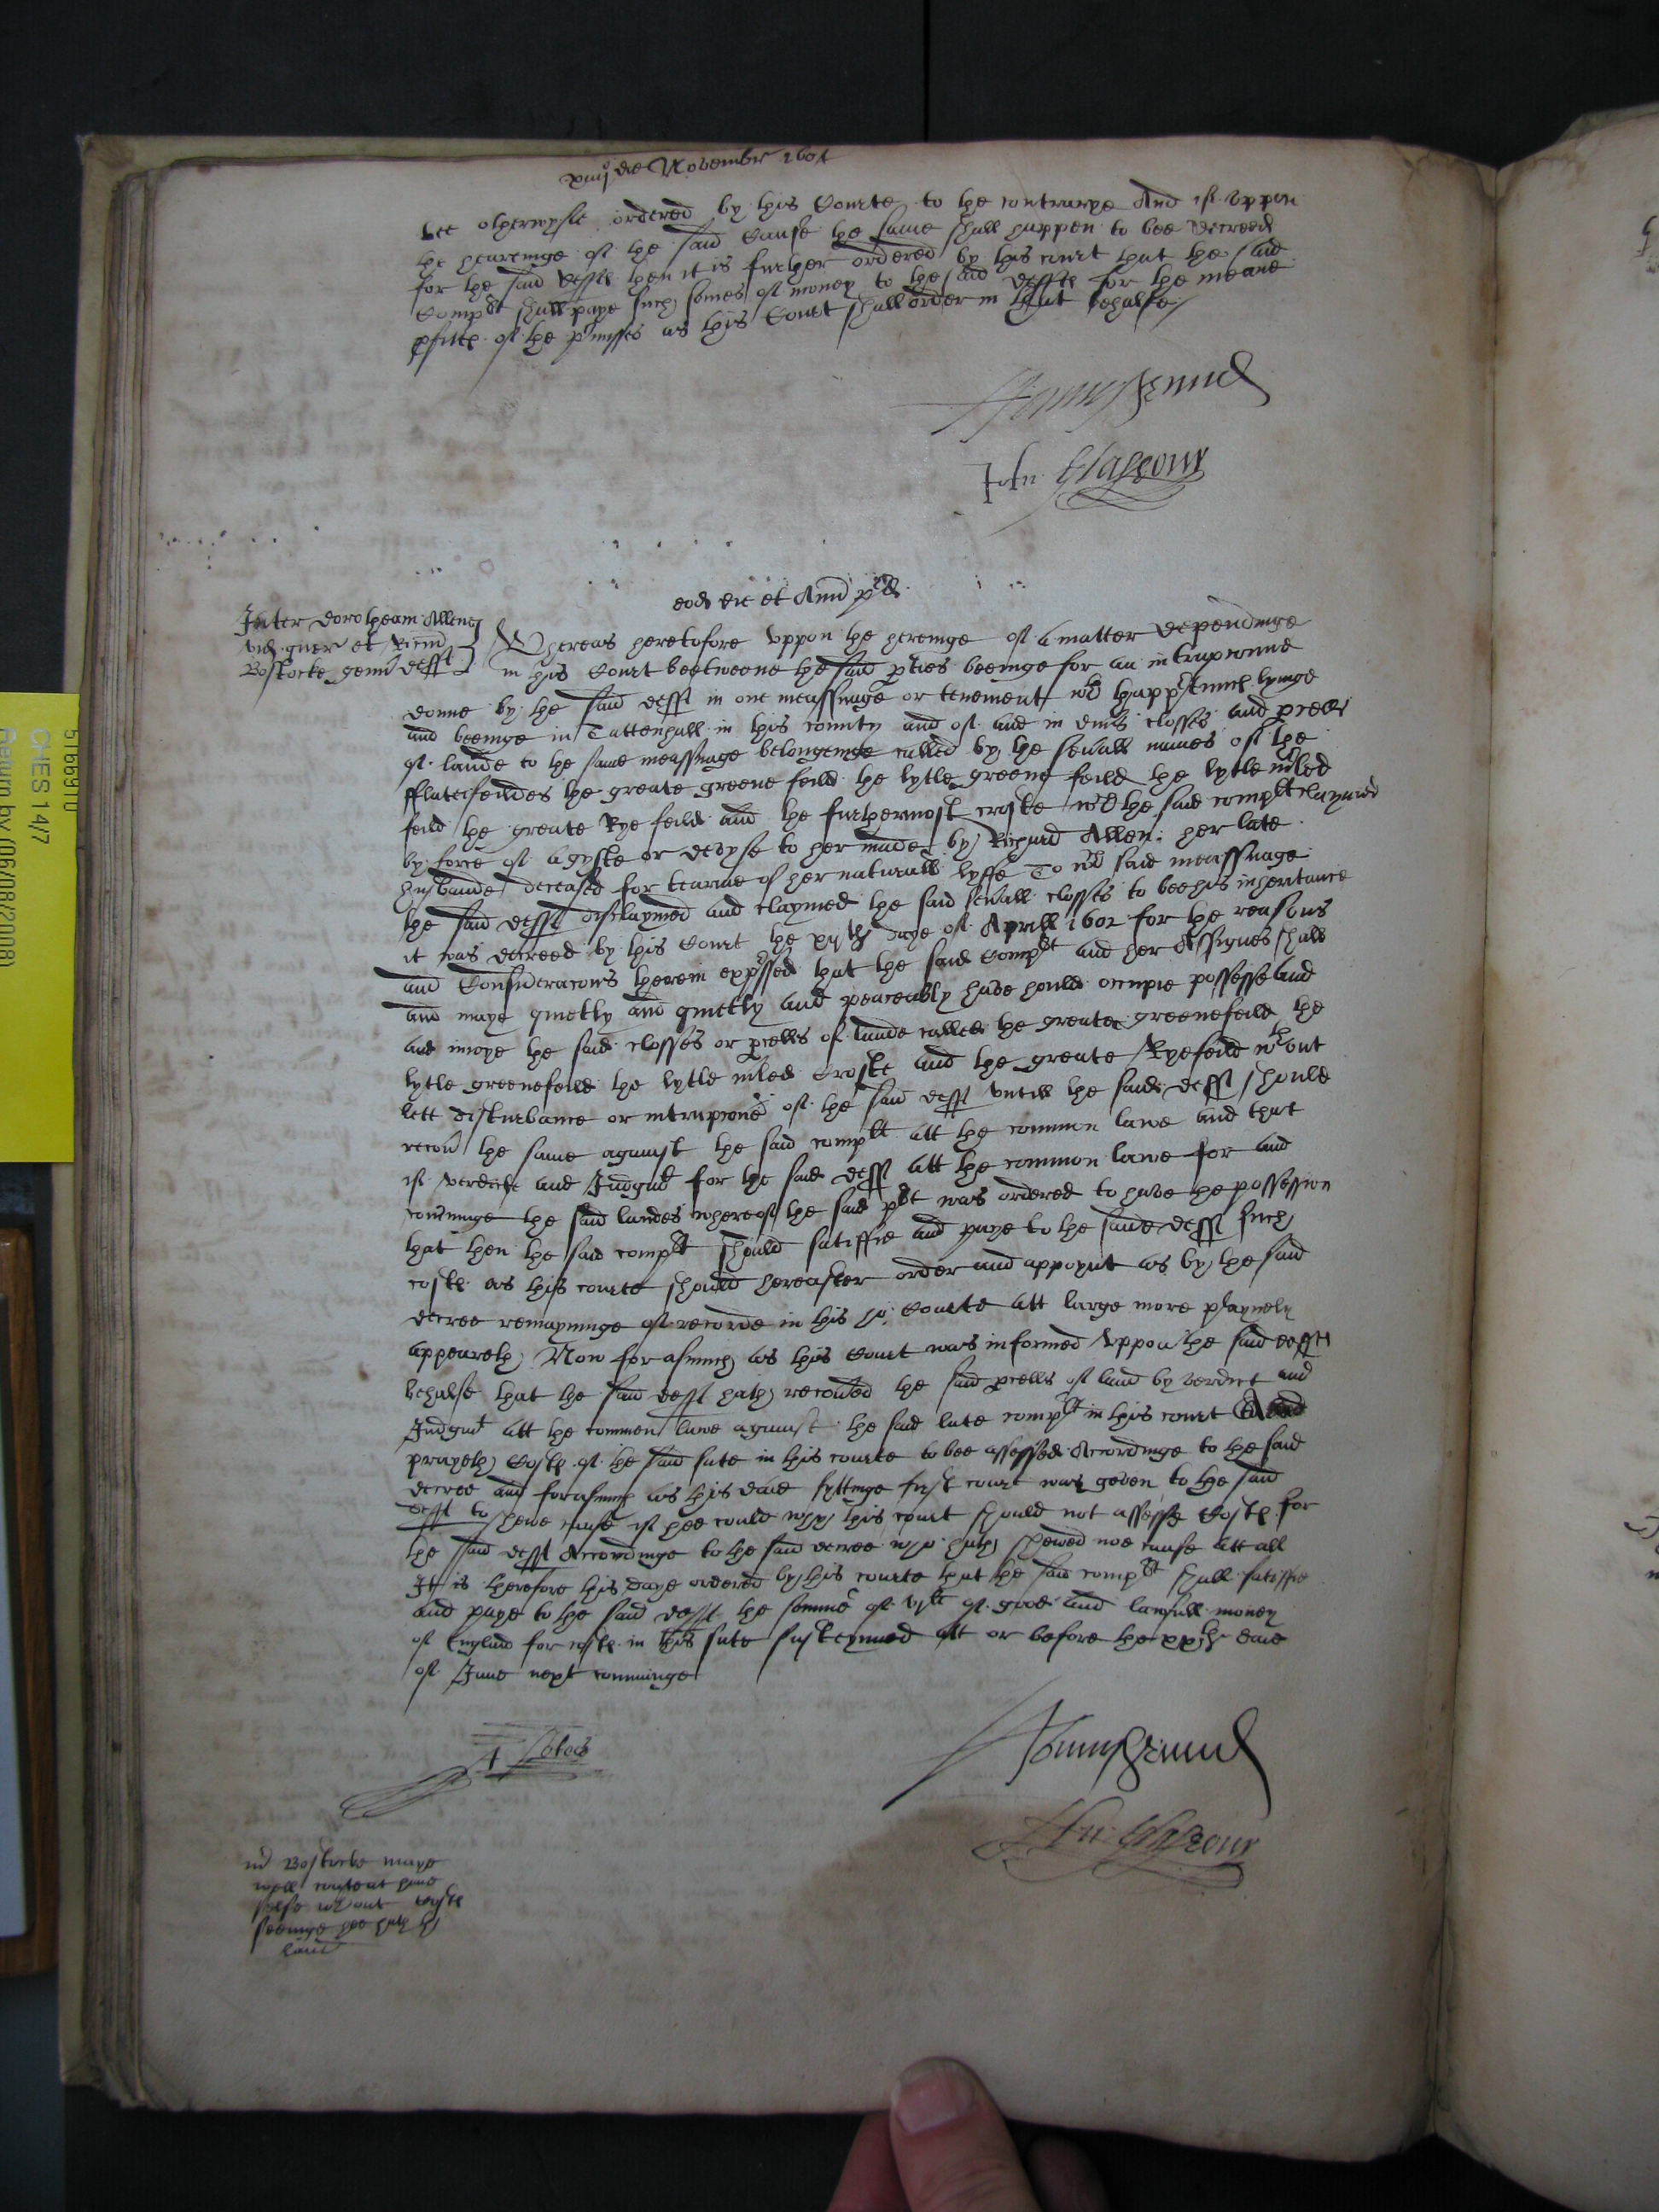 die Novembr 1601
bee otherwyse ordered by this Courte to the contrarye And if uppon
the hearinge of the said Cause the same shall happen to bee decreed
for the said defft then it is further ordered by this court that the said
Complt shall paye such somes of money to the said defft for the meane
pfitts of the pmisses as this Court shall order in that behalfe
John Glaseour
eod die et Anno pd
Inter Dorotheam Allen
vid quer et Ricm
Bostocke gen defft
Whereas heretofore uppon the hereinge of a matter dependinge
in this Court beetweene the said pties beeinge for an intrupcone
donne by the said defft in one meassuage or tenement wth thappurtnncs lyinge
and beeinge in Tattenhall in this county and of and in divs closses and pcells
of lande to the same meassuage belonginge called by the sevall names of the
fflattefeildes the greate greene feild the lytle greene feild the lytle
feild the greate Rye feild and the furthermost crofte wch the said complt claymed
by force of a gyfte or devyse to her made by Richard Allen her late
husbande deceased for tearme of her naturall lyffe To wch said meassuage
the said defft disclaymed and claymed the said sevall closses to bee his inheritance
it was decreed by this Court the daye of Aprill 1601 for the reasons
and Consideracons therein expssed that the said Complt and her Assignes shall
and maye quietly and quietly and peaceably have hould occupie possesse and
and inioye the said closses or pcells of lande called the greate greenefeild the
lytle greenefeild the lytle crofte and the greate Ryefeild wthout
lett disturbance or intrupcone of the said defft untill the said defft should
recov the same against the said complt att the common lawe and that
if verdicte and Judgmt for the said defft att the common lawe for and
the said landes whereof the said plt was ordered to have the possession
that then the said complt should satisffie and paye to the saide defft such
costs as this courte should hereafter order and appoynt as by the said
decree remayninge of recorde in this Courte att large more playnely
appeareth Now forasmuch as this Court was informed uppon the said deffts
behalfe that the said defft hath recoved the said pcells of land by verdict and
Judgmt att the common lawe against the said late complt in this court And
prayeth Costs of the said sute in this courte to bee assessed Accordinge to the said
decree and forasmuch as this daie syttinge first court was geven to the said
defft to shewe cause if hee could why this court should not assesse Costs for
the said defft Accordinge to the said decree who hath shewed noe cause att all
It is therefore this daye ordered by this courte that the said complt shall satisffie
and paye to the said defft the somme of of good and lawfull money
of England for costs in this sute susteyned att or before the daie
of June next comminge
John Glaseour
Bostocke maye
well content hime
selfe wthout costs
seeinge hee hath
land
5166910
CHES 14/7
Return by (06/08/2008)